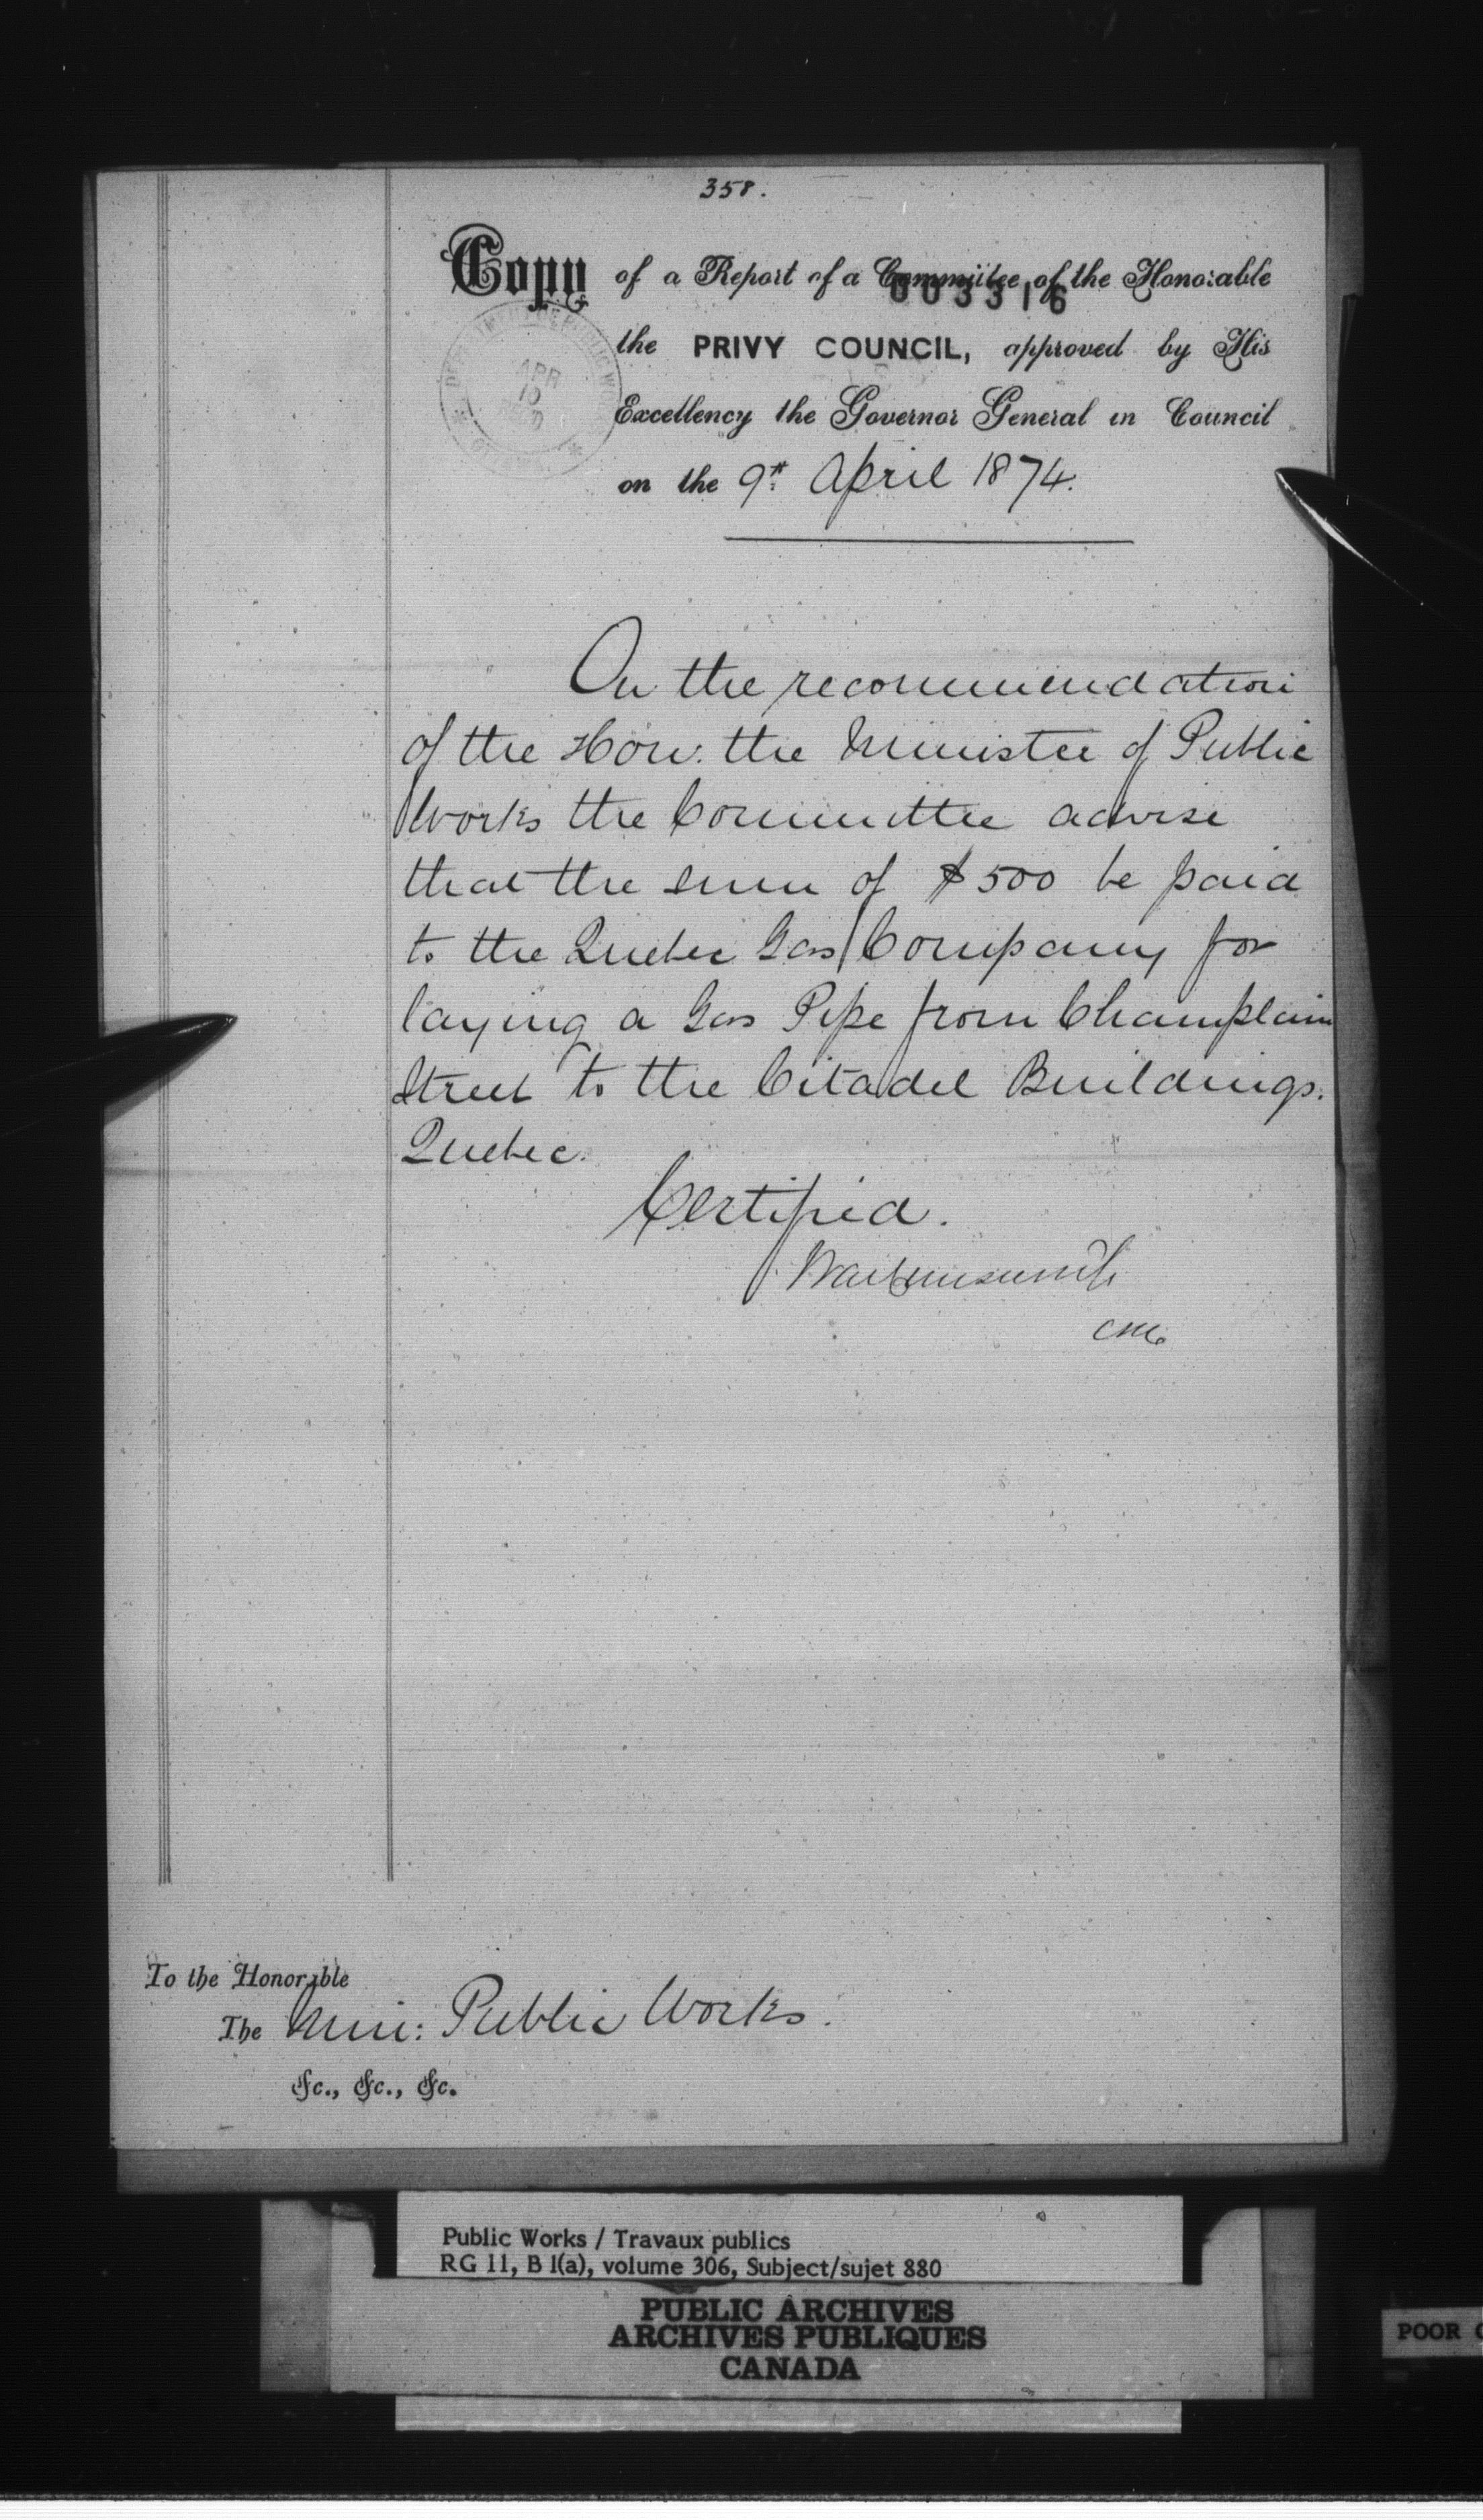 358.
Copy of a Report of a Committee of the Honorable
003316
the PRIVY COUNCIL, approved by His
Excellency the Governor General in Council
on the 9th April 1874.
APR
10
On the recommendation
of the Hon. the Minister of Public
Works the Committee advise
that the sum of $500 be paid
to the Quebec Gas Company for
laying a Gas Pipe from Champlain
Street to the Citadel Buildings.
Quebec.
Certified.
To the Honorable
The Min: Public Works.
&c., &c., &c.
Public Works / Travaux publics
RG 11, B 1(a), volume 306, Subject/sujet 880
PUBLIC ARCHIVES
ARCHIVES PUBLIQUES
CANADA
POOR